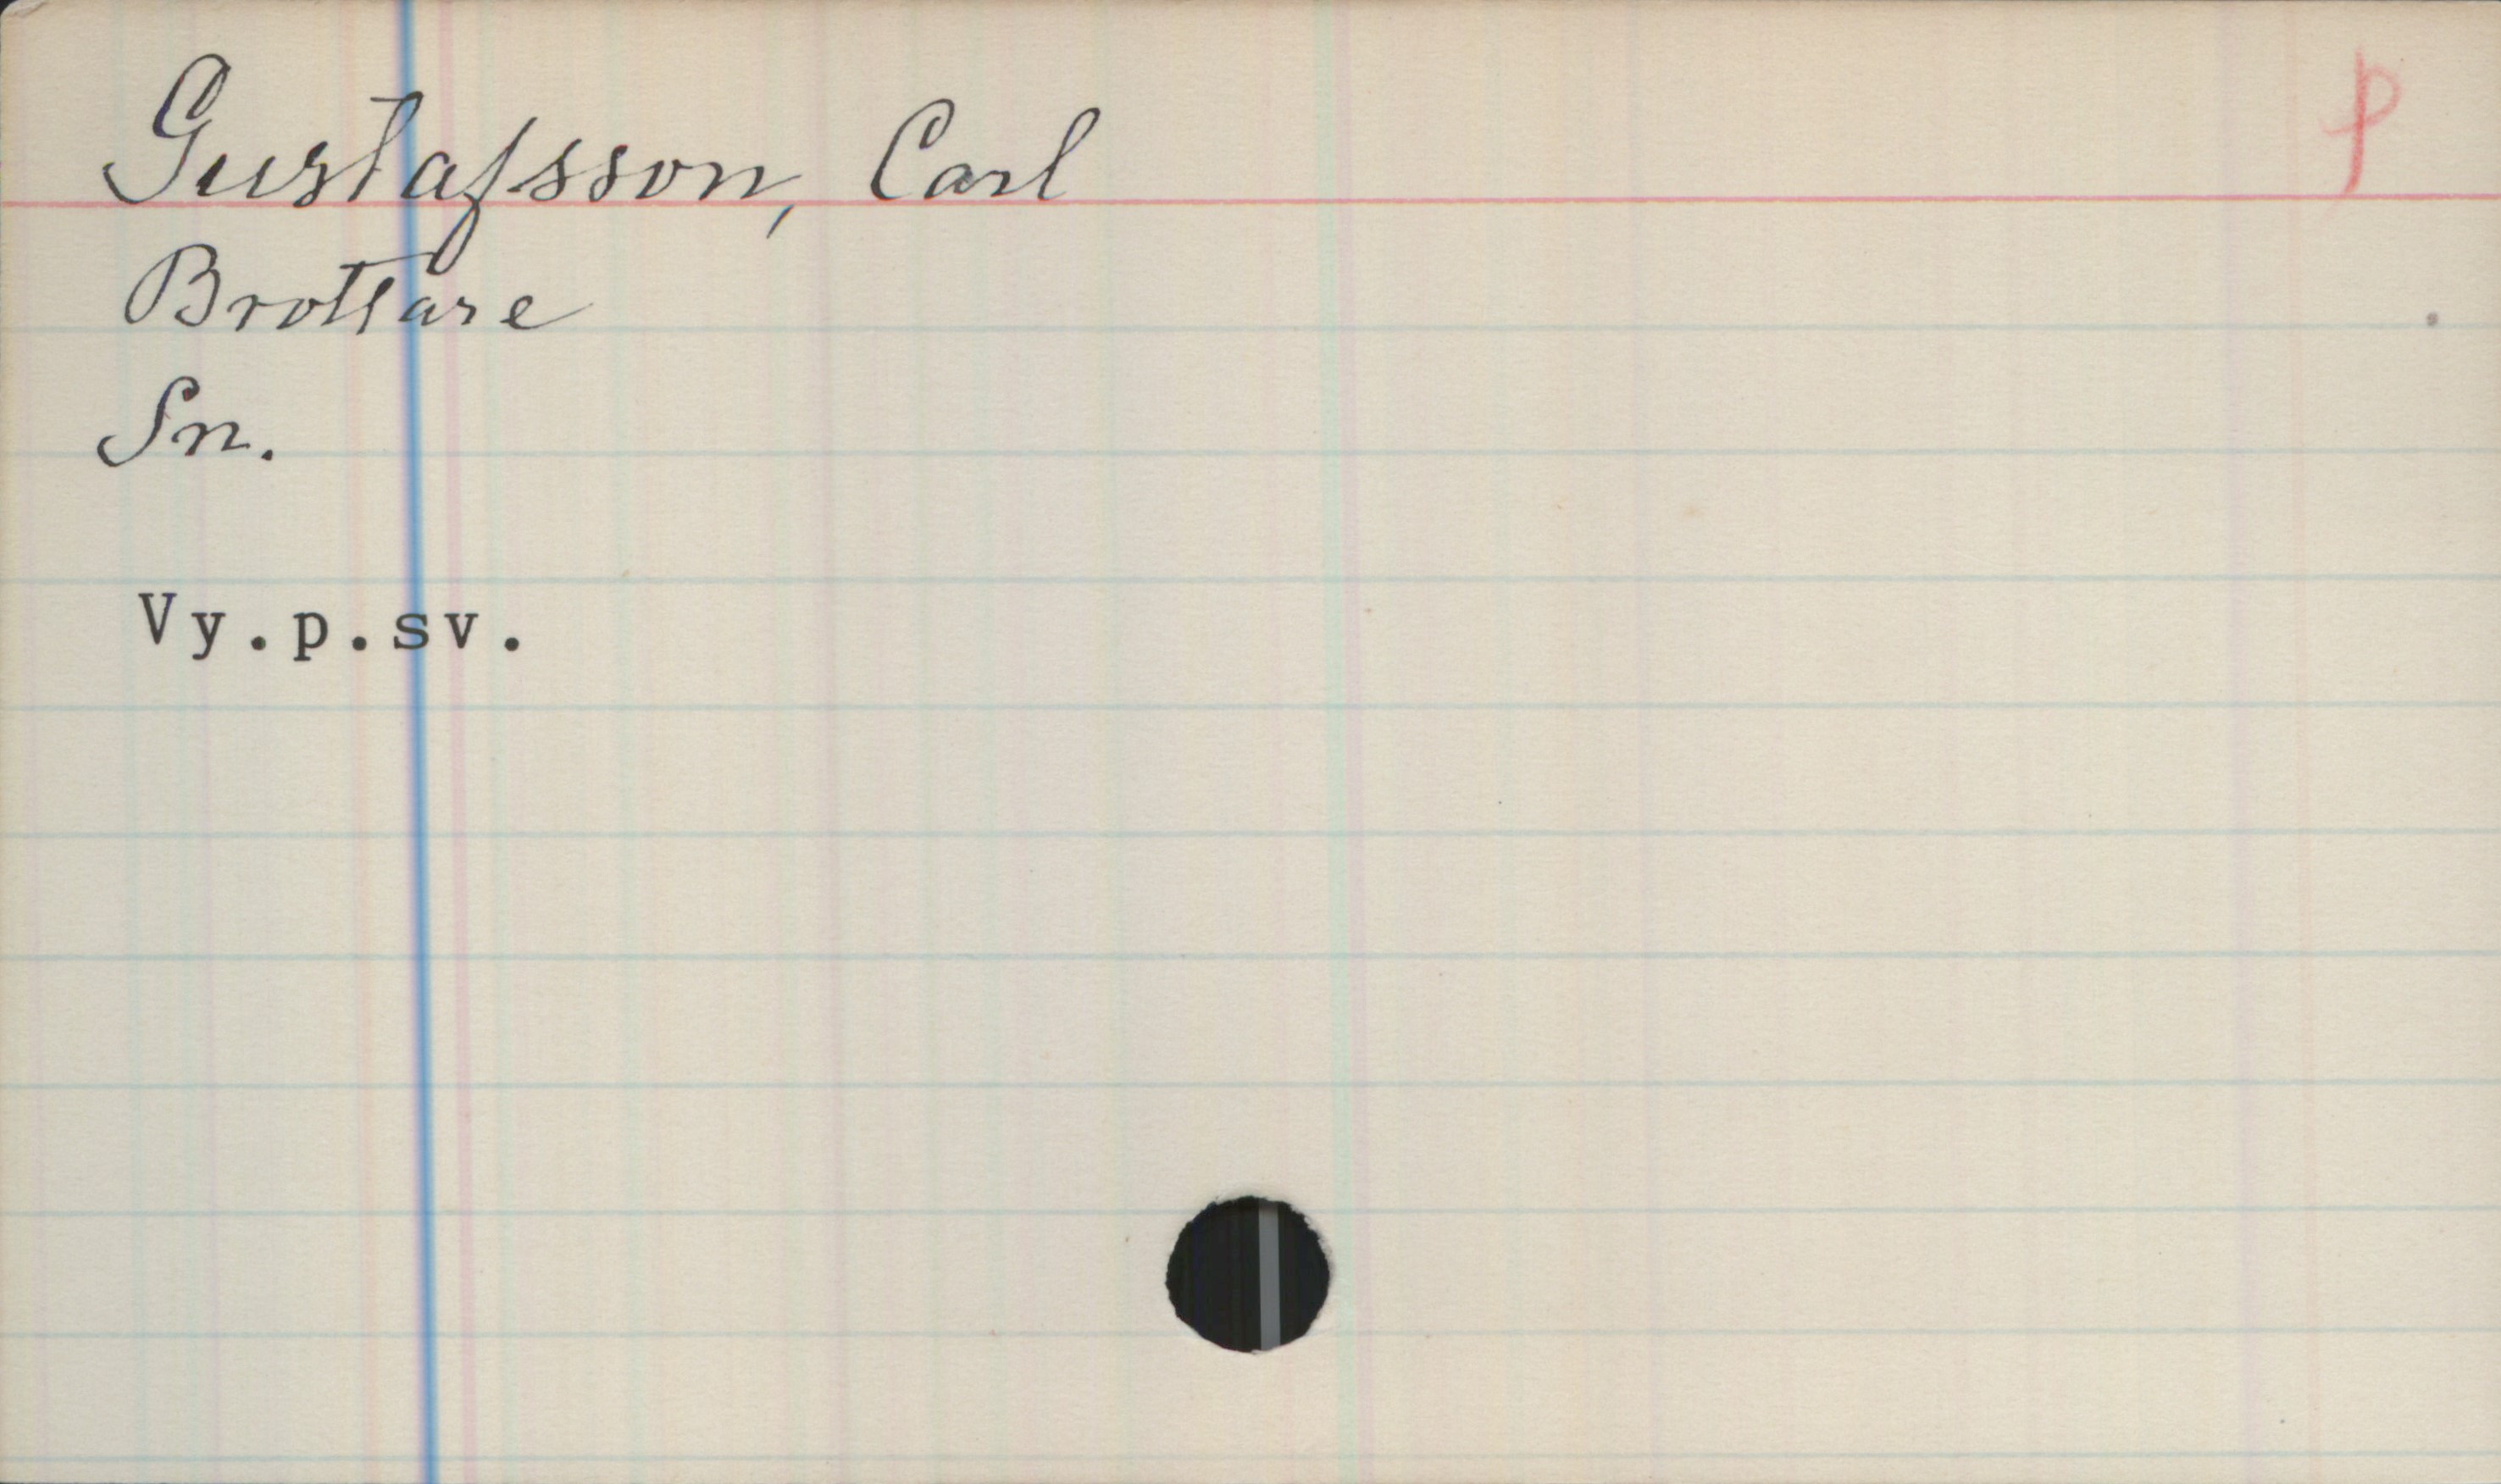 Gustafsson, Carl p
Brottare
Sn.
Vy.p.sv.